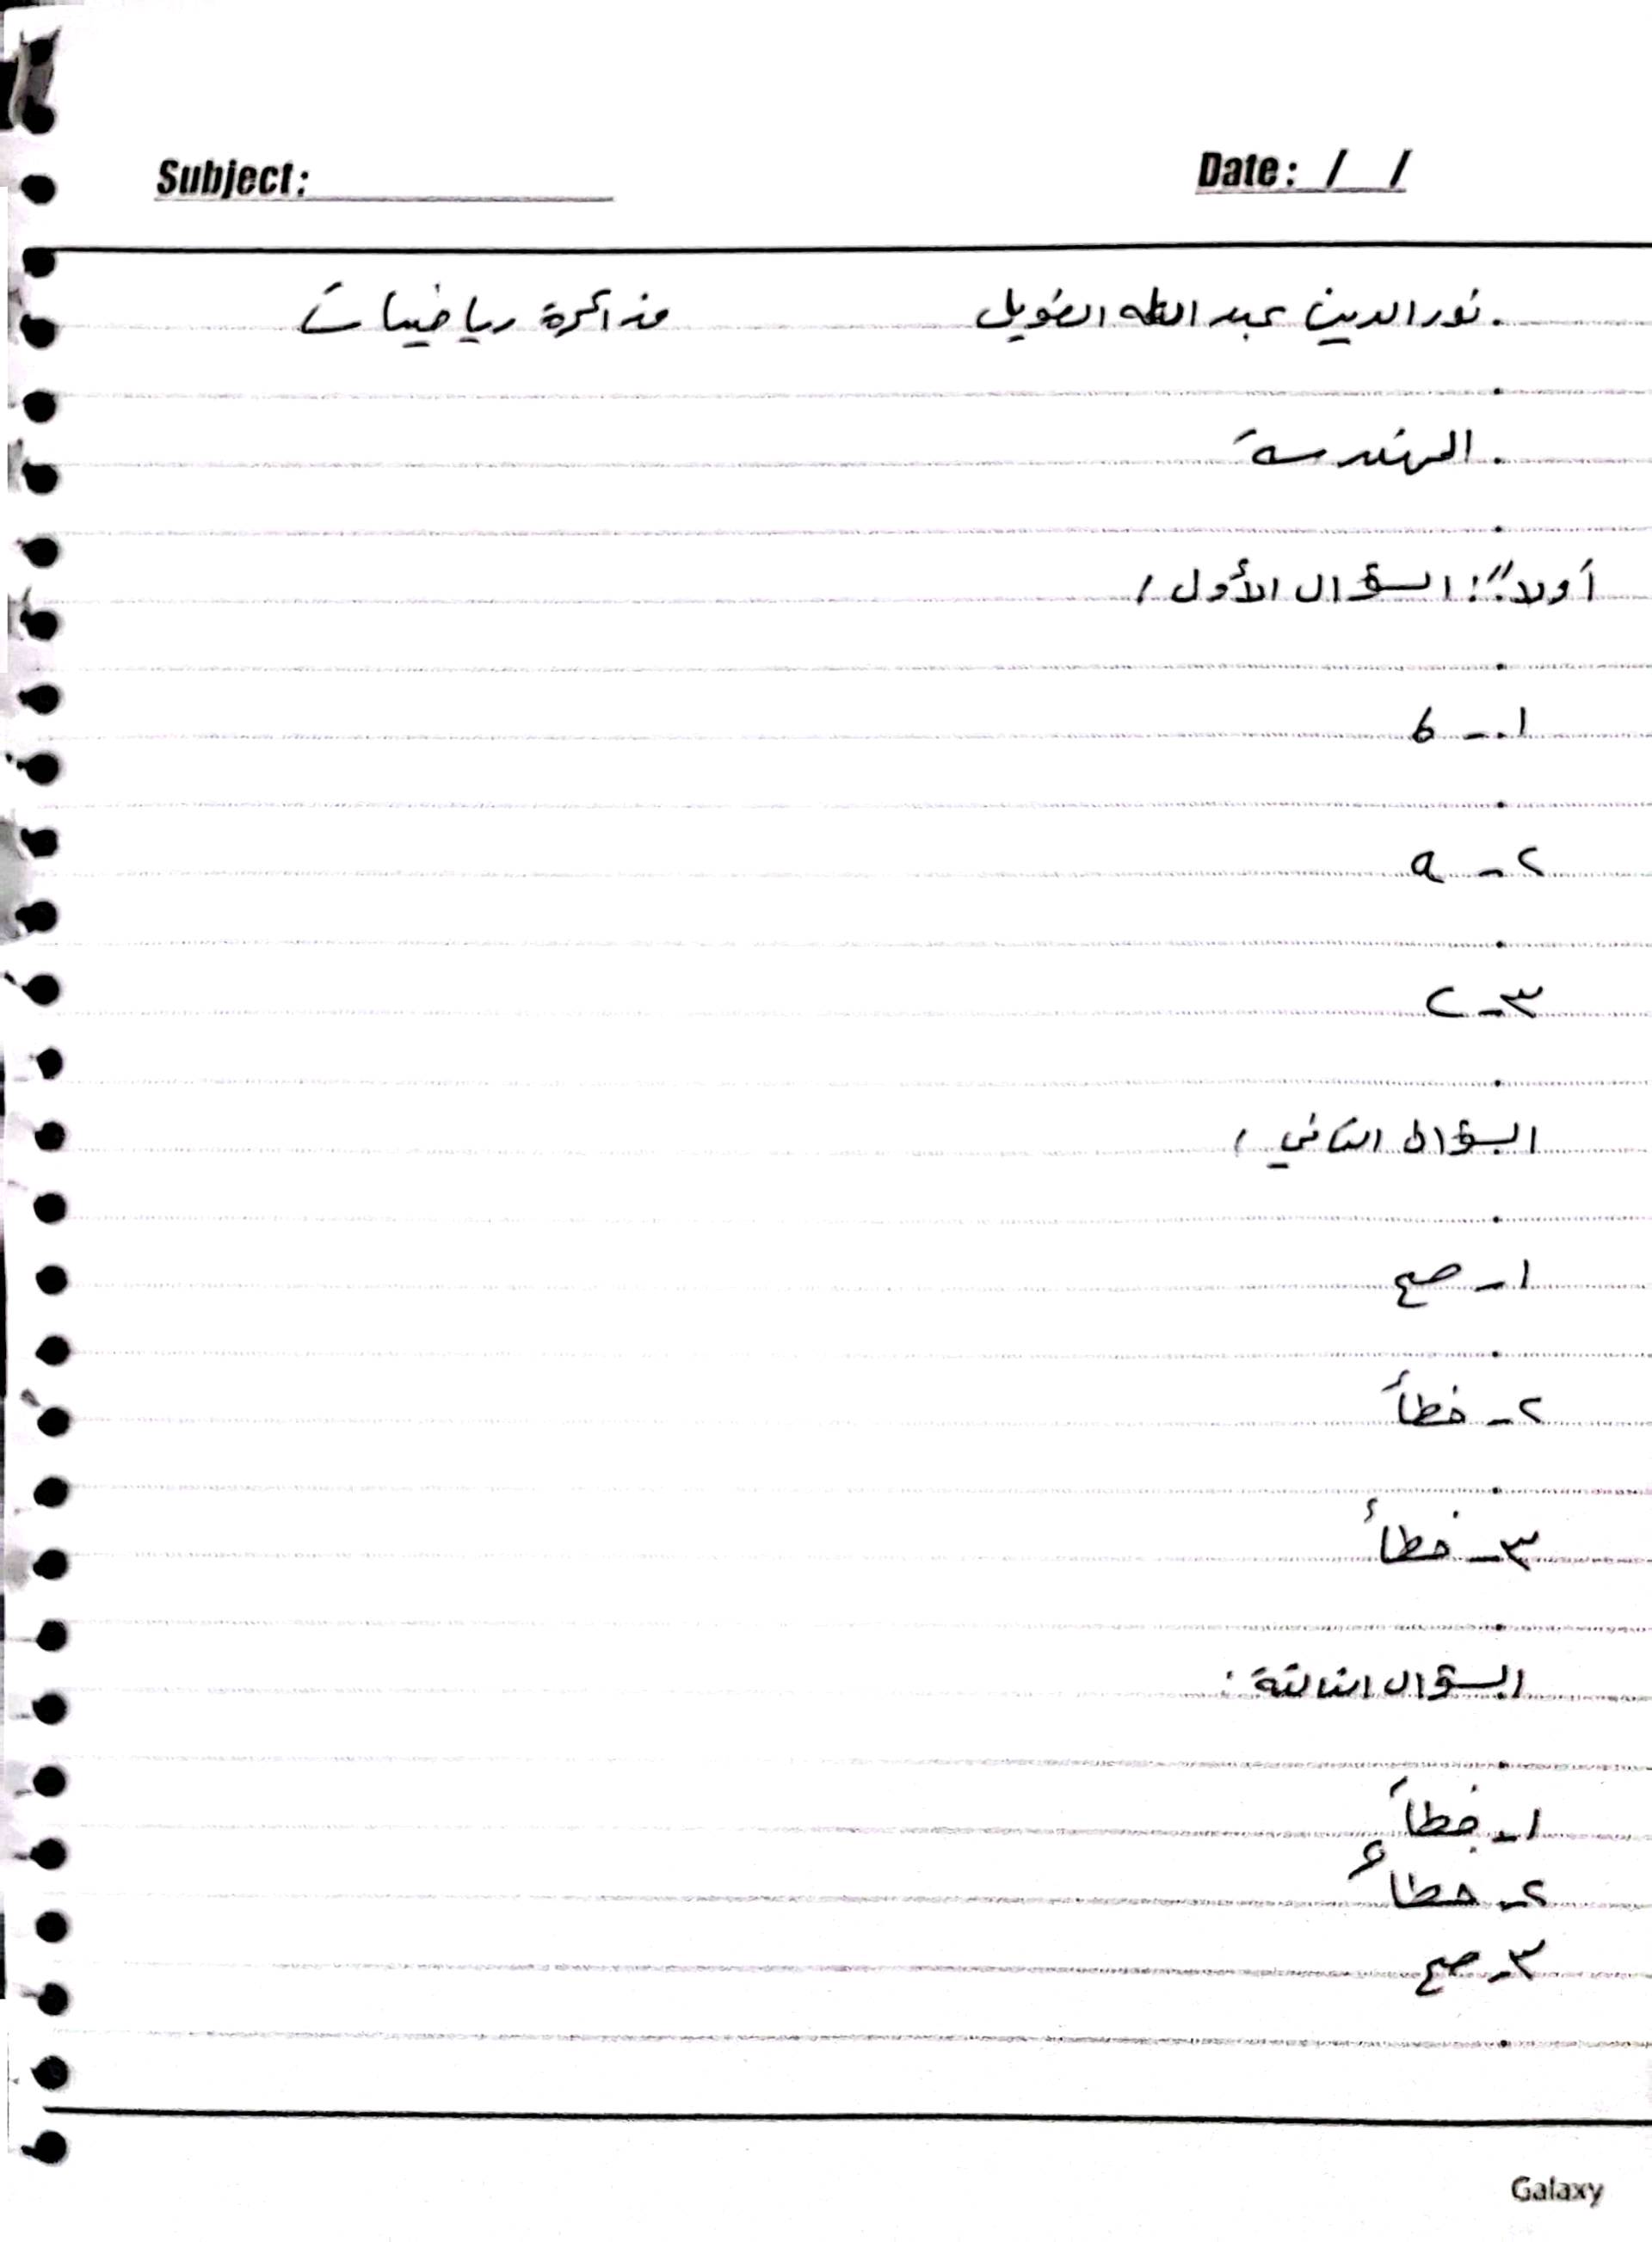 Subject: Date: / /
نور الدين عبد الله الضويل مذاكرة رياضيات
الهندسة
أولاً: السؤال الأول /
١- b
٢- a
٣- c
السؤال الثاني /
١- صح
٢- خطأ
٣- خطأ
السؤال الثالثة:
١- خطأ
٢- خطأ
٣- صح
Galaxy